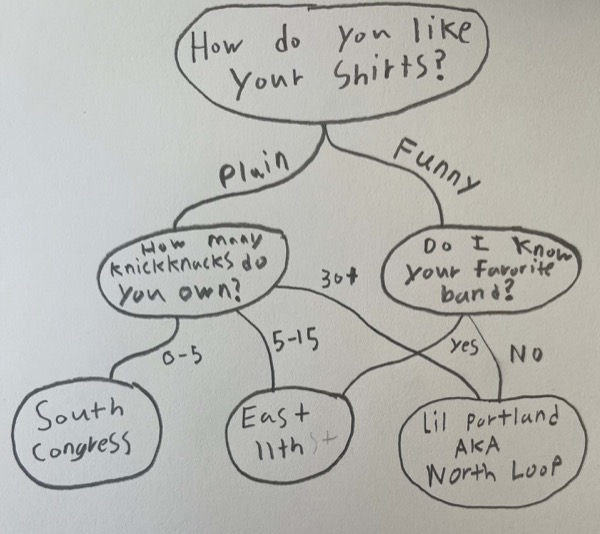 How do you like
your shirts?
Plain
Funny
How many
knickknacks do
you own?
Do I know
your favorite
band?
30+
0-5
5-15
yes
No
South
Congress
East
11th st
Lil Portland
AKA
North Loop